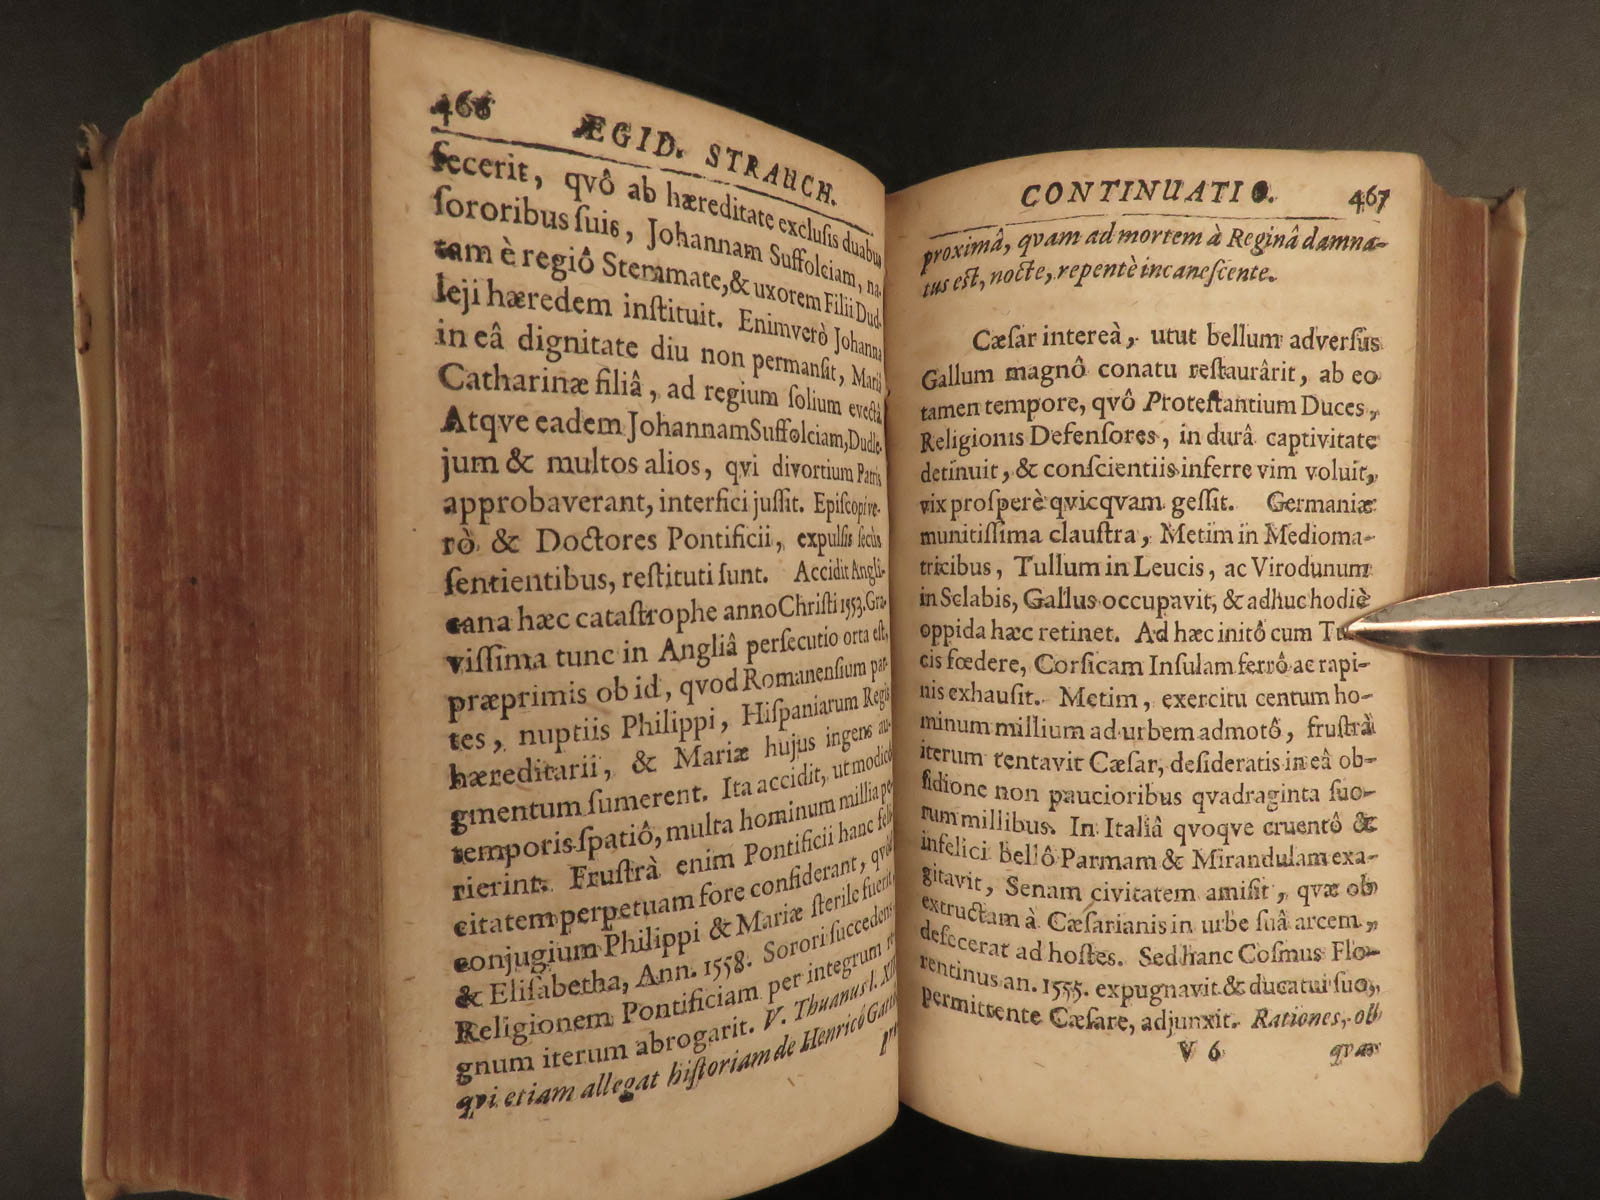 466
ÆGID. STRAUCH.
fecerit, qvô ab hæreditate exclusis duabus
sororibus suis, Johannam Suffolciam, na-
tam è regiô Stemmate, & uxorem Filii Dud-
leji hæredem instituit. Enimverò Johanna
in eâ dignitate diu non permansit, Mariâ
Catharinæ filiâ, ad regium solium evectâ
Atqve eadem Johannam Suffolciam, Dudle-
jum & multos alios, qvi divortium Patris
approbaverant, interfici jussit. Episcopi ve-
rò & Doctores Pontificii, expulsis secùs
sentientibus, restituti sunt. Accidit Angli-
cana hæc catastrophe anno Christi 1553. Gra-
vissima tunc in Angliâ persecutio orta est,
præprimis ob id, qvod Romanensium par-
tes, nuptiis Philippi, Hispaniarum Regis
hæreditarii, & Mariæ hujus ingens au-
gmentum sumerent. Ita accidit, ut modico
temporis spatiô, multa hominum millia pe-
rierint. Frustrà enim Pontificii hanc feli-
citatem perpetuam fore confiderant, qvod
conjugium Philippi & Mariæ sterile fuerit
& Elisabetha, Ann. 1558. Sorori succedens
Religionem Pontificiam per integrum re-
gnum iterum abrogarit. V. Thuanus l. XIII
qvi etiam allegat historiam de Henricô
CONTINUATIO.
467
proximâ, qvam ad mortem à Reginâ damna-
tus est, nocte, repentè incanescente.
Cæsar intereà, utut bellum adversus
Gallum magnô conatu restaurârit, ab eo
tamen tempore, qvô Protestantium Duces,
Religionis Defensores, in durâ captivitate
detinuit, & conscientiis inferre vim voluit,
vix prosperè qvicqvam gessit. Germaniæ
munitissima claustra, Metim in Medioma-
tricibus, Tullum in Leucis, ac Virodunum
in Sclabis, Gallus occupavit, & adhuc hodiè
oppida hæc retinet. Ad hæc initô cum
cis fœdere, Corsicam Insulam ferrô ac rapi-
nis exhausit. Metim, exercitu centum ho-
minum millium ad urbem admotô, frustrà
iterum tentavit Cæsar, desideratis in eâ ob-
sidione non paucioribus qvadraginta suo-
rum millibus. In Italiâ qvoqve cruentô &
infelici bellô Parmam & Mirandulam exa-
gitavit, Senam civitatem amisit, qvæ ob
extructam à Cæsarianis in urbe suâ arcem,
defecerat ad hostes. Sed hanc Cosmus Flo-
rentinus an. 1555. expugnavit & ducatui suo,
permittente Cæsare, adjunxit. Rationes, ob
V 6 qvas